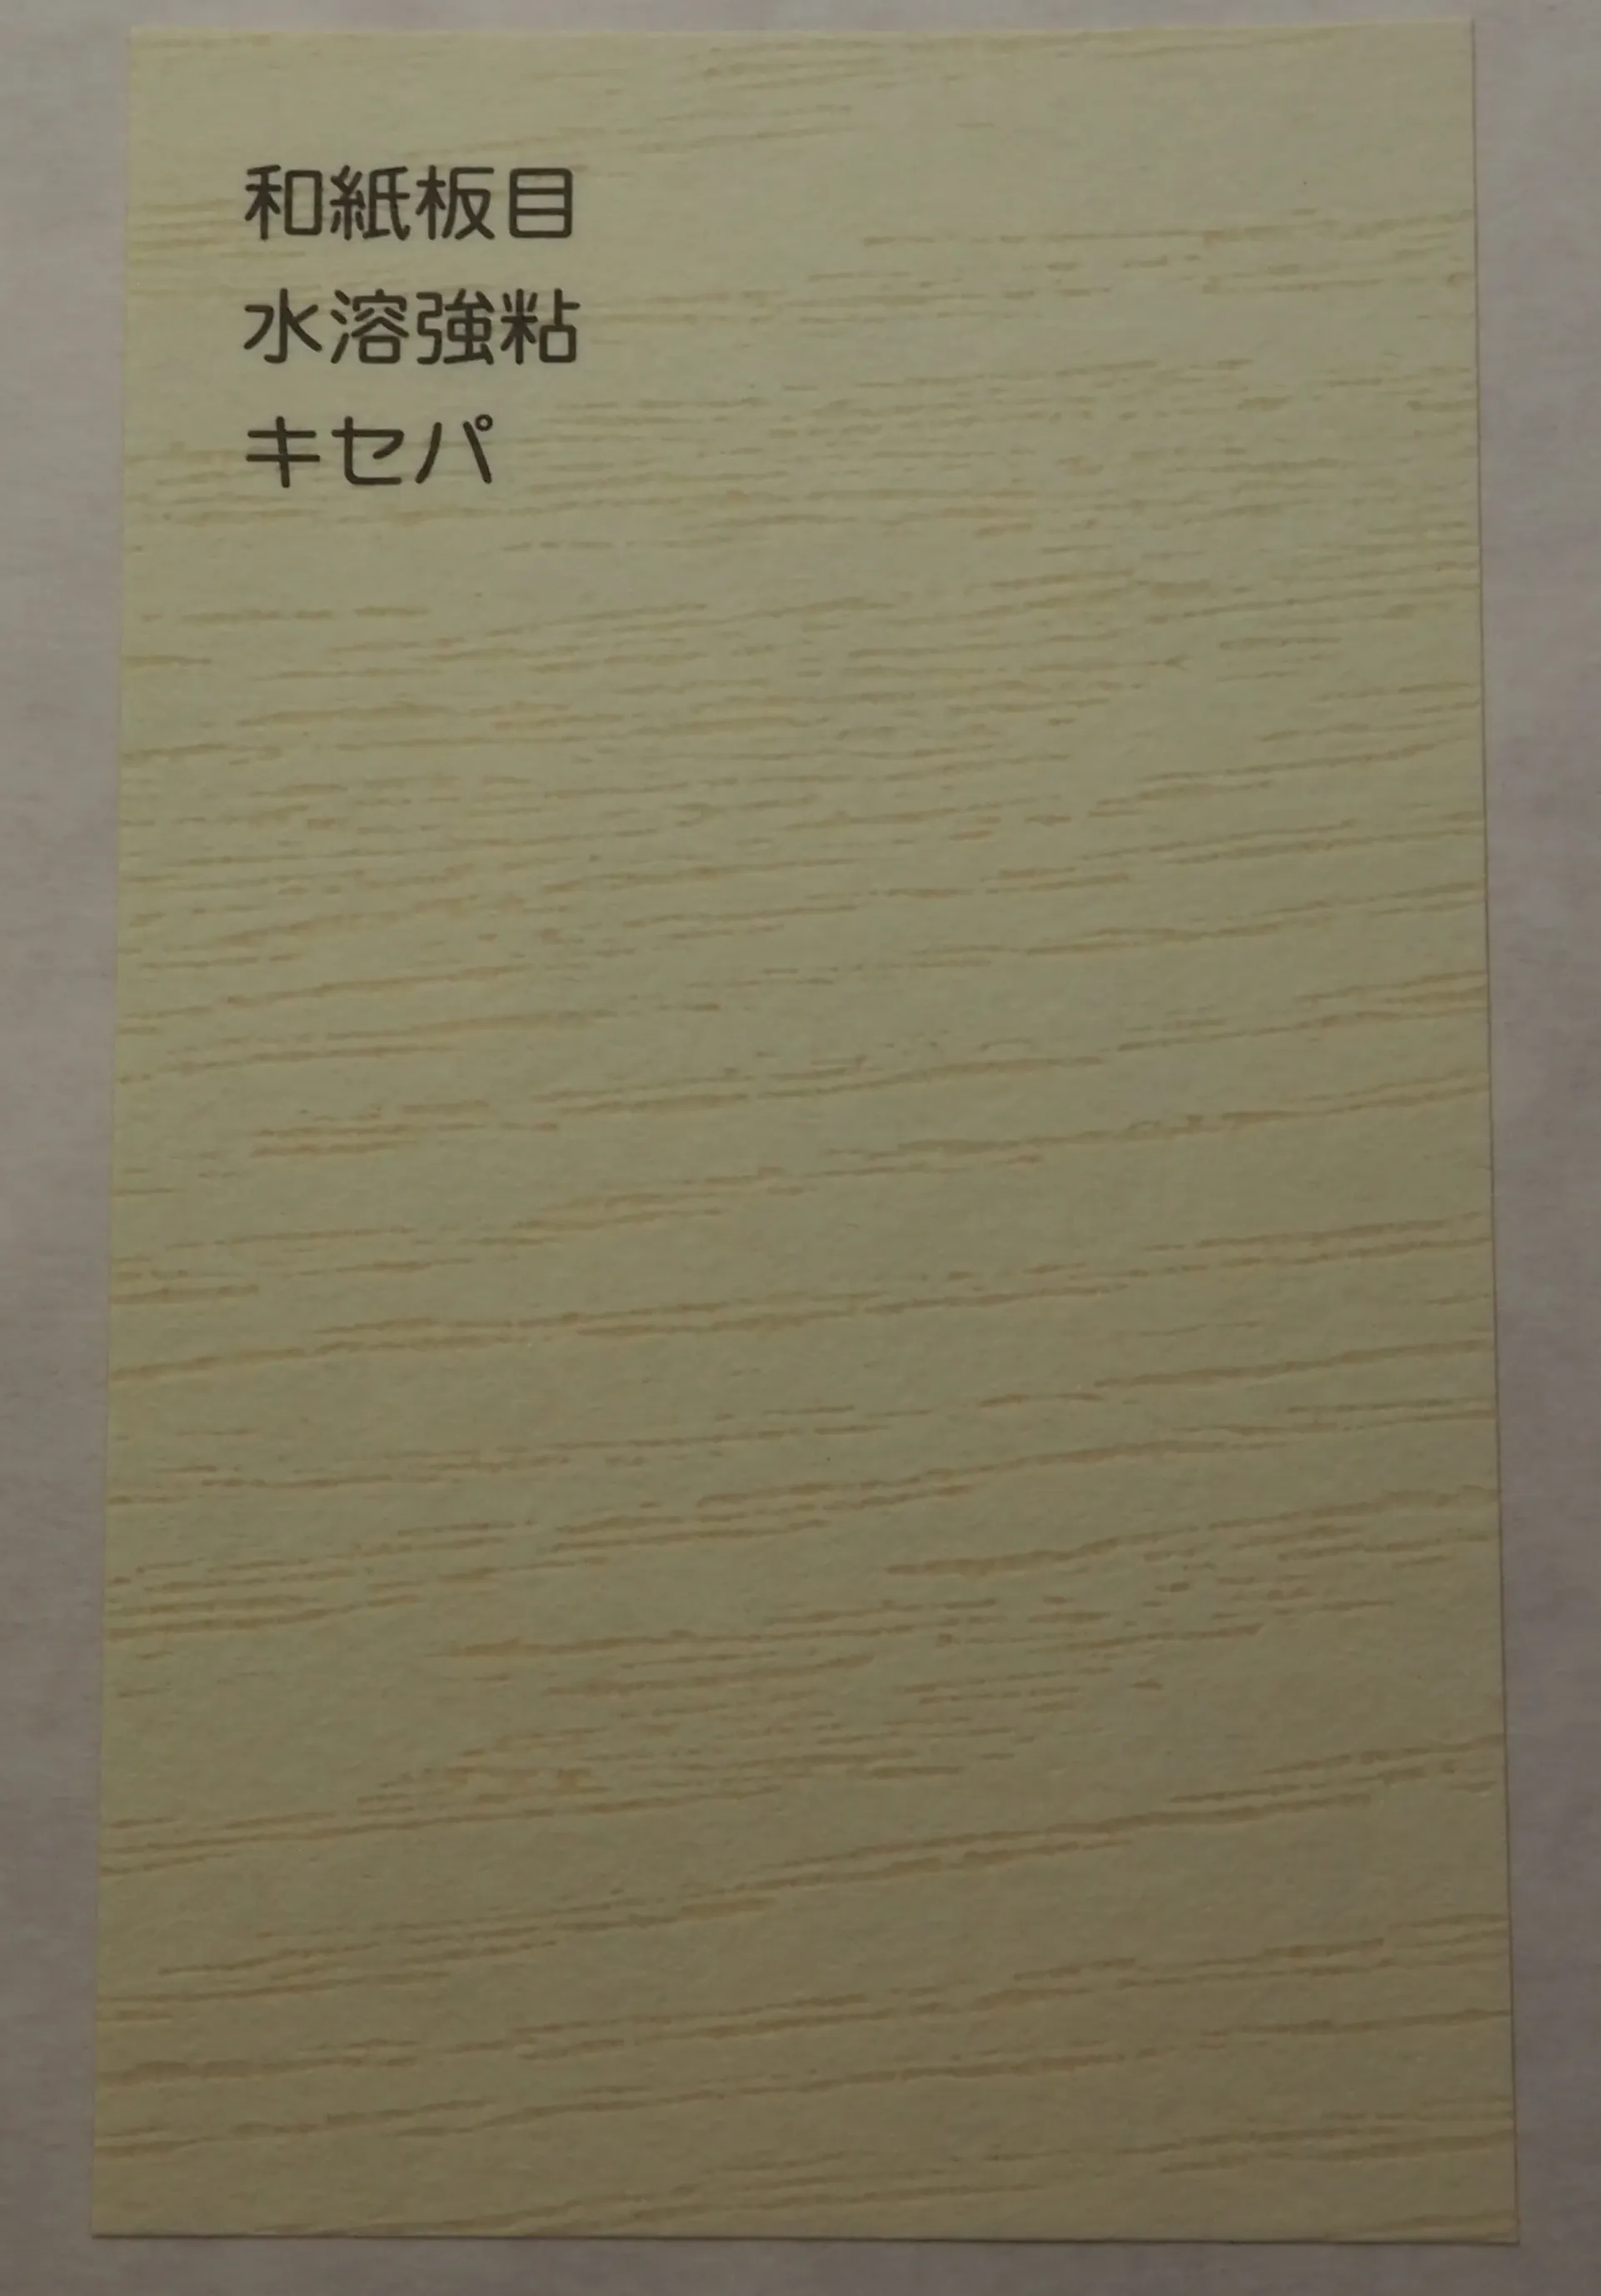 和紙板目
水溶強粘
キセパ